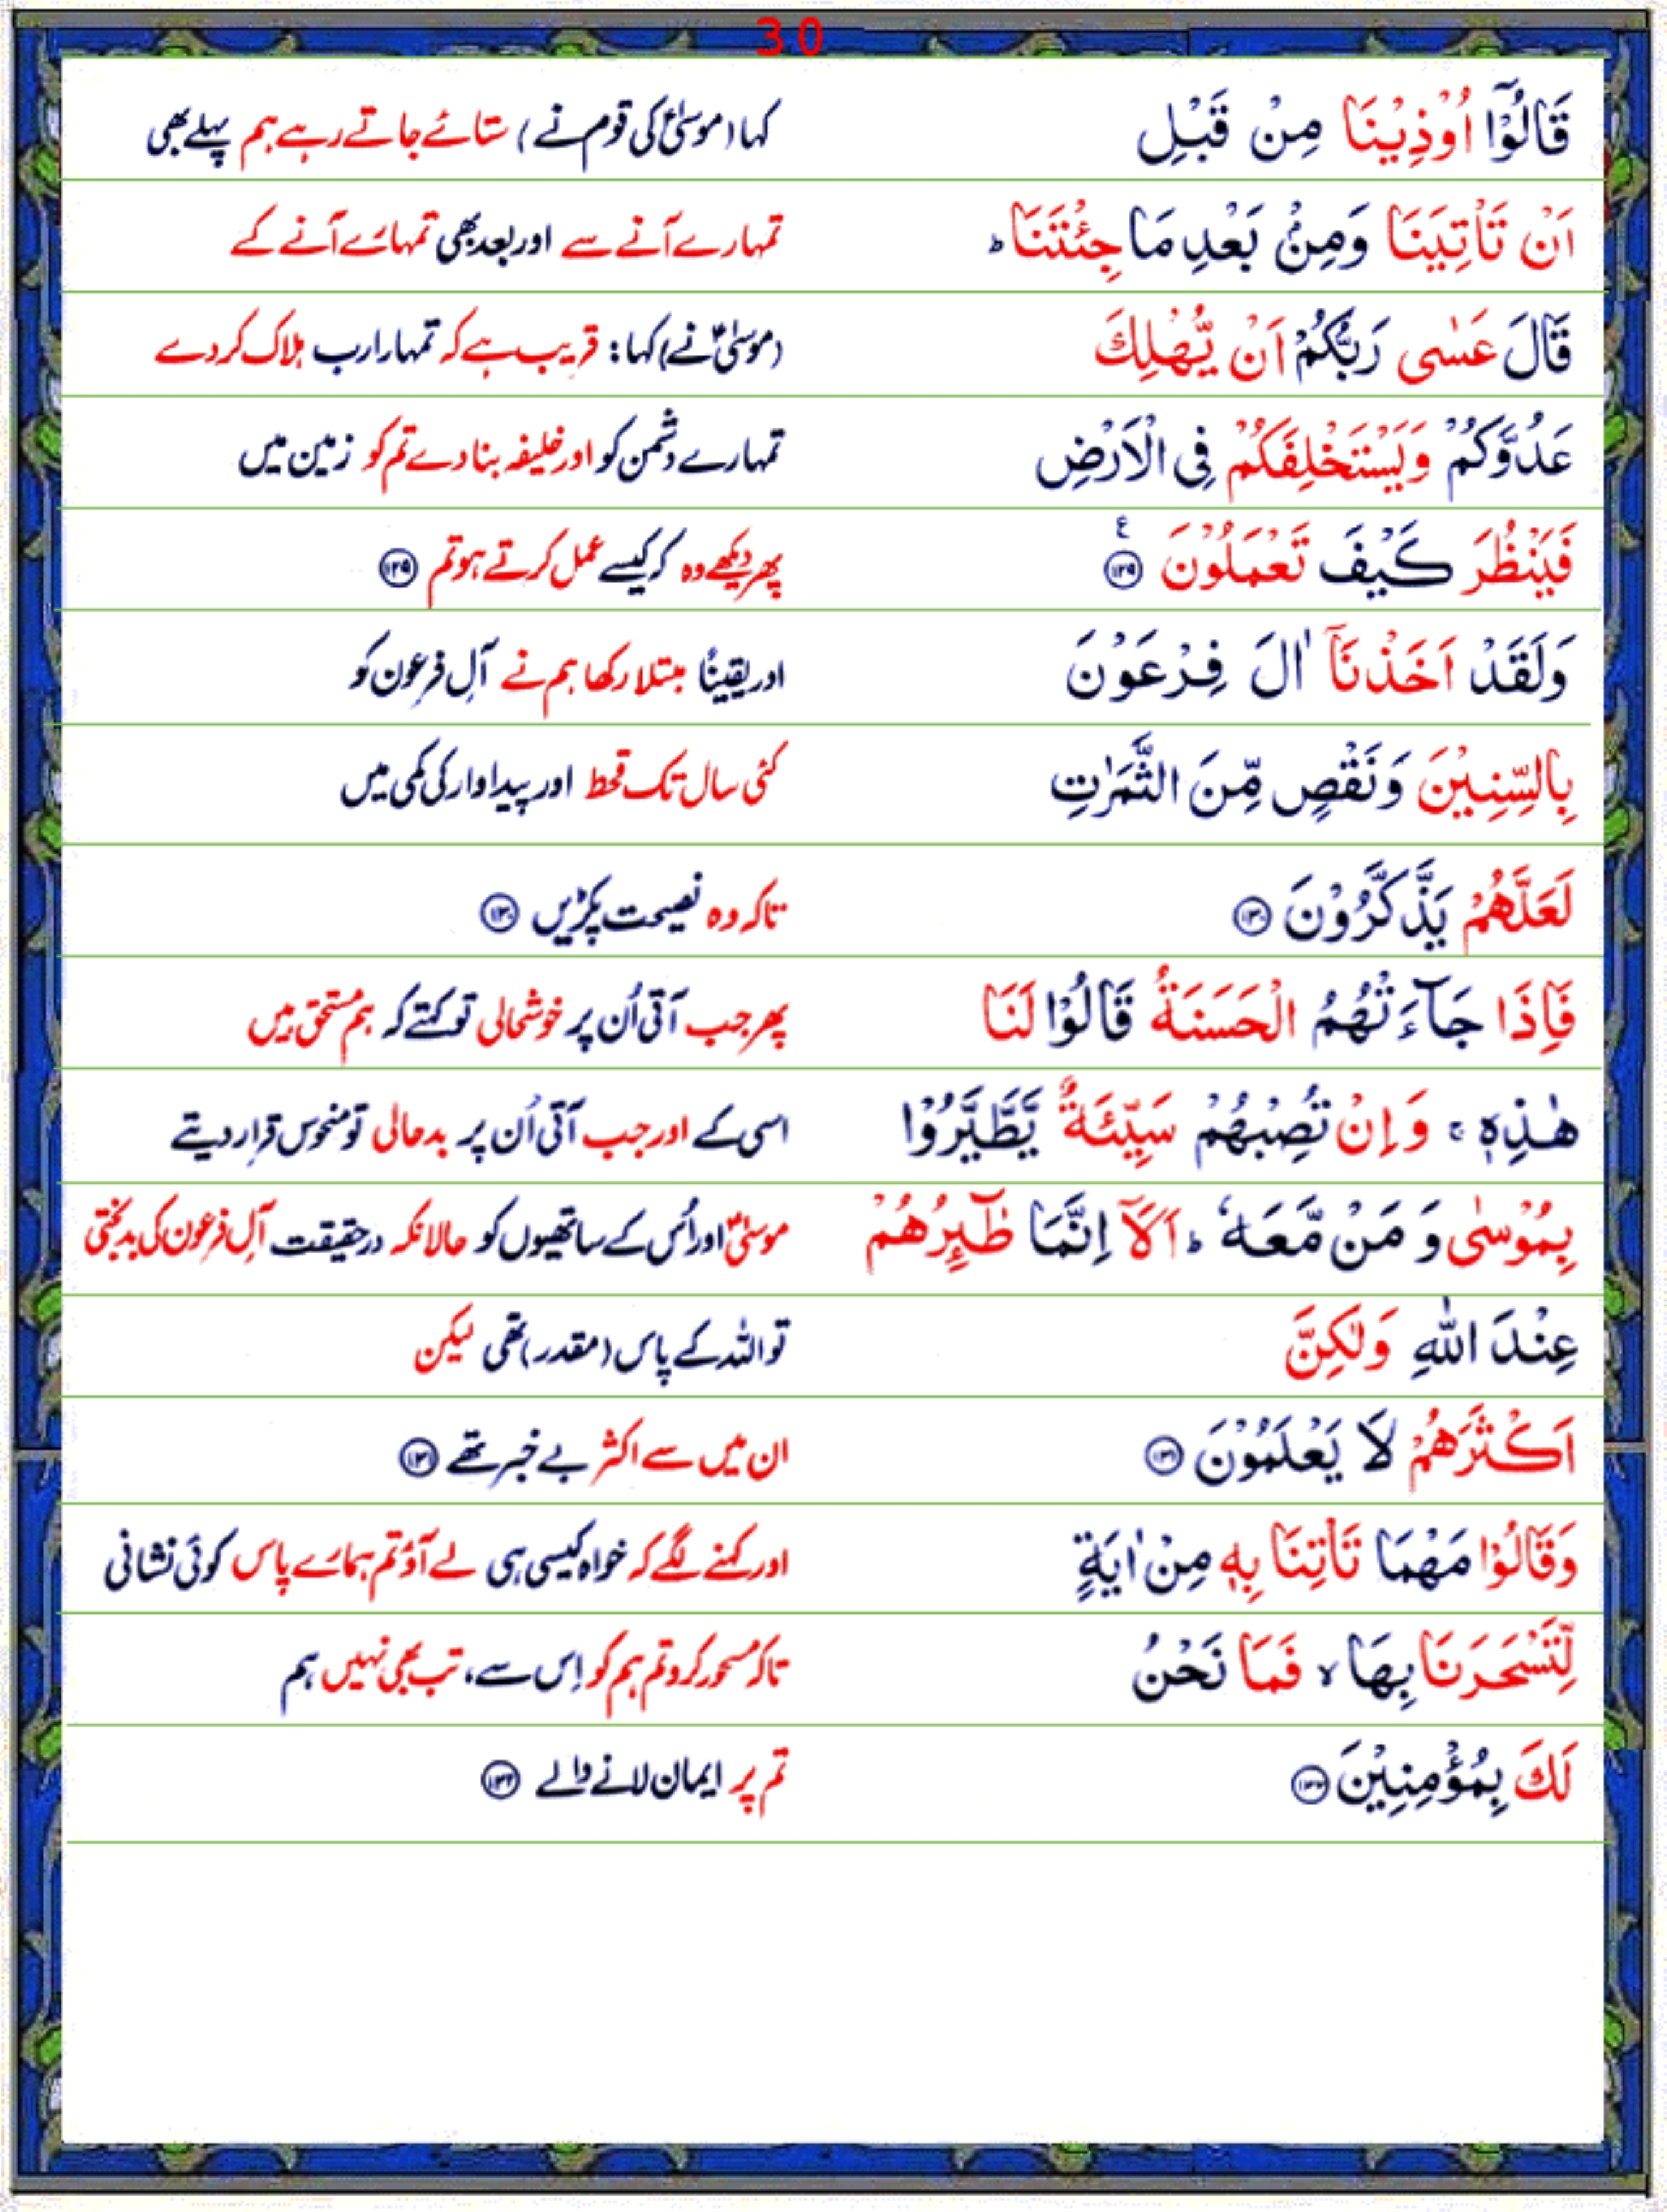 30
قَالُوْۤا اُوْذِيْنَا مِنْ قَبْلِ کہا (موسیٰؑ کی قوم نے) ستائے جاتے رہے ہم پہلے بھی
اَنْ تَاْتِيَنَا وَمِنْۢ بَعْدِ مَا جِئْتَنَا ؕ تمہارے آنے سے اور بعد بھی تمہارے آنے کے
قَالَ عَسٰى رَبُّكُمْ اَنْ يُّهْلِكَ (موسیٰؑ نے) کہا: قریب ہے کہ تمہارا رب ہلاک کر دے
عَدُوَّكُمْ وَيَسْتَخْلِفَكُمْ فِى الْاَرْضِ تمہارے دشمن کو اور خلیفہ بنا دے تم کو زمین میں
فَيَنْظُرَ كَيْفَ تَعْمَلُوْنَ ۧ ۱۲۹ پھر دیکھے وہ کہ کیسے عمل کرتے ہو تم ۱۲۹
وَلَقَدْ اَخَذْنَاۤ اٰلَ فِرْعَوْنَ اور یقیناً مبتلا رکھا ہم نے آلِ فرعون کو
بِالسِّنِيْنَ وَنَقْصٍ مِّنَ الثَّمَرٰتِ کئی سال تک قحط اور پیداوار کی کمی میں
لَعَلَّهُمْ يَذَّكَّرُوْنَ ۱۳۰ تاکہ وہ نصیحت پکڑیں ۱۳۰
فَاِذَا جَآءَتْهُمُ الْحَسَنَةُ قَالُوْا لَنَا پھر جب آتی اُن پر خوشحالی تو کہتے کہ ہم مستحق ہیں
هٰذِهٖ ۚ وَاِنْ تُصِبْهُمْ سَيِّئَةٌ يَّطَّيَّرُوْا اسی کے اور جب آتی اُن پر بدحالی تو منحوس قرار دیتے
بِمُوْسٰى وَ مَنْ مَّعَهٗ ؕ اَلَاۤ اِنَّمَا طٰٓٮِٕرُهُمْ موسیٰؑ اور اُس کے ساتھیوں کو حالانکہ درحقیقت آلِ فرعون کی بدبختی
عِنْدَ اللّٰهِ وَلٰكِنَّ تو اللہ کے پاس (مقدر) تھی لیکن
اَكْثَرَهُمْ لَا يَعْلَمُوْنَ ۱۳۱ ان میں سے اکثر بے خبر تھے ۱۳۱
وَقَالُوْا مَهْمَا تَاْتِنَا بِهٖ مِنْ اٰيَةٍ اور کہنے لگے کہ خواہ کیسی ہی لے آؤ تم ہمارے پاس کوئی نشانی
لِّتَسْحَرَنَا بِهَا ۙ فَمَا نَحْنُ تاکہ مسحور کرو تم ہم کو اِس سے، تب بھی نہیں ہم
لَكَ بِمُؤْمِنِيْنَ ۱۳۲ تم پر ایمان لانے والے ۱۳۲